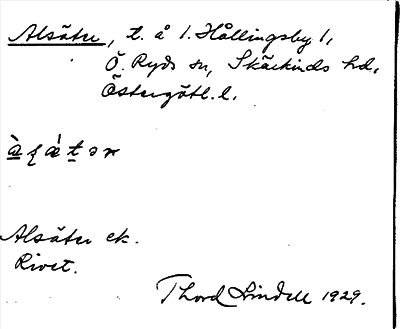 Alsäter, t. å 1. Hållingsby 1,
Ö. Ryds sn, Skärkinds hd,
Östergötl. l.
Alsäter ek.
Rivet.
Thord Lindell 1929.